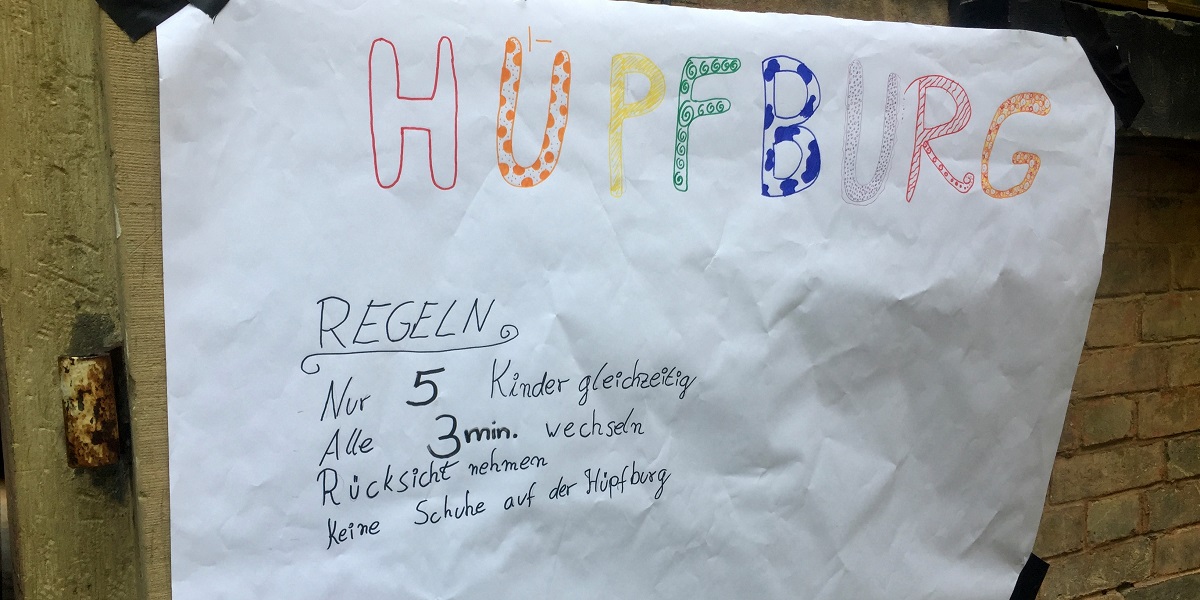 HÜPFBURG
REGELN
Nur 5 Kinder gleichzeitig
Alle 3 min. wechseln
Rücksicht nehmen
Keine Schuhe auf der Hüpfburg